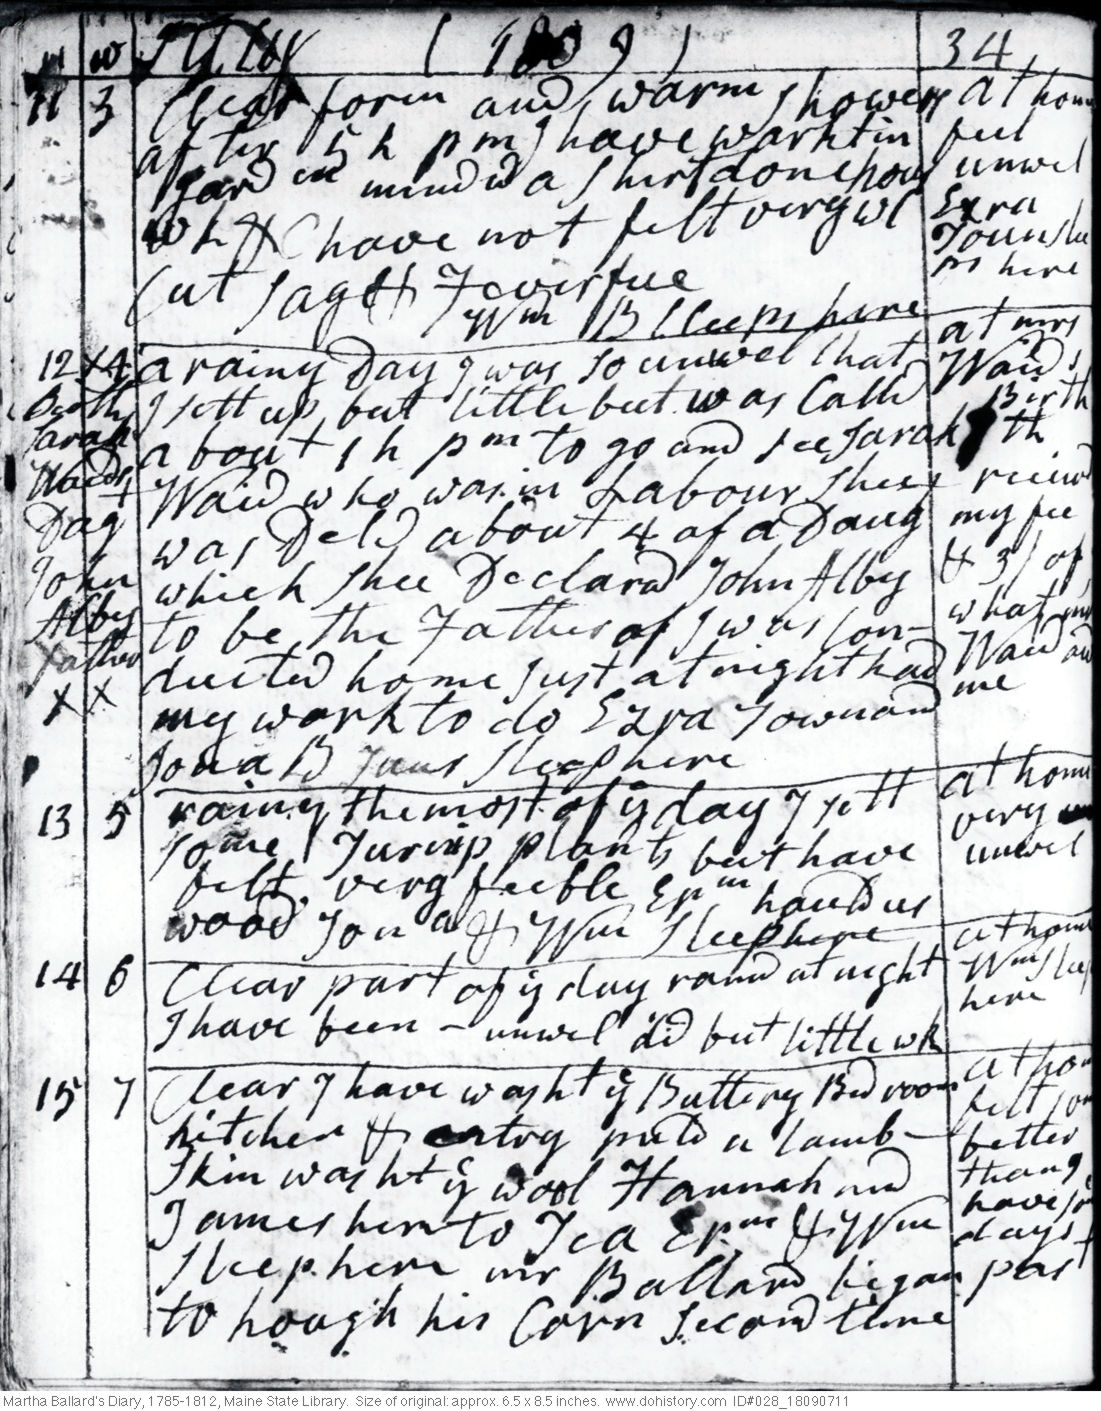 m w July (1809) 34
11 3 Clear foren and warm showers
after 5 h pm I have workt in
gard and mend a shirt done hous
wk & C have not felt very wl
Cut Sage & Feverfue
Wm B Sleeps here
at home
feel
unwel
Ezra
here
12 x4 a rainy Day I was so unwel that
I sett up but little but was Calld
about 1 h pm to go and see Sarah
Waid who was in Labour Shee
was Deld about 4 of a Daug
which shee Declard John Alby
to be the Father of I was Con-
ducted home just at night had
my work to do Ezra Town and
Jona B Sleep here
Birth
Sarah
Waids
Dag
John
Alby
Father
X X
at mrs
Waids
Birth
7th
receivd
my fee
& 3/ of
what
Waid
me
13 5 rainy the most of ye day I sett
some Turnip plants but have
felt very feeble Epm hauld us
wood Jona & Wm Sleep here
at home
very
unwel
14 6 Clear part of ye day raind at night
I have been - unwel did but little wk
at home
Wm Sleep
here
15 7 Clear I have washt ye Buttery Bed room
kitchen & entry puld a lamb-
skin washt ye wool Hannah and
James here to Tea Epm & Wm
Sleep here mr Ballard began
to hough his Corn Second time
at home
felt
better
than I
have
days
past
Martha Ballard's Diary, 1785-1812, Maine State Library. Size of original: approx. 6.5 x 8.5 inches. www.dohistory.com ID#028_18090711